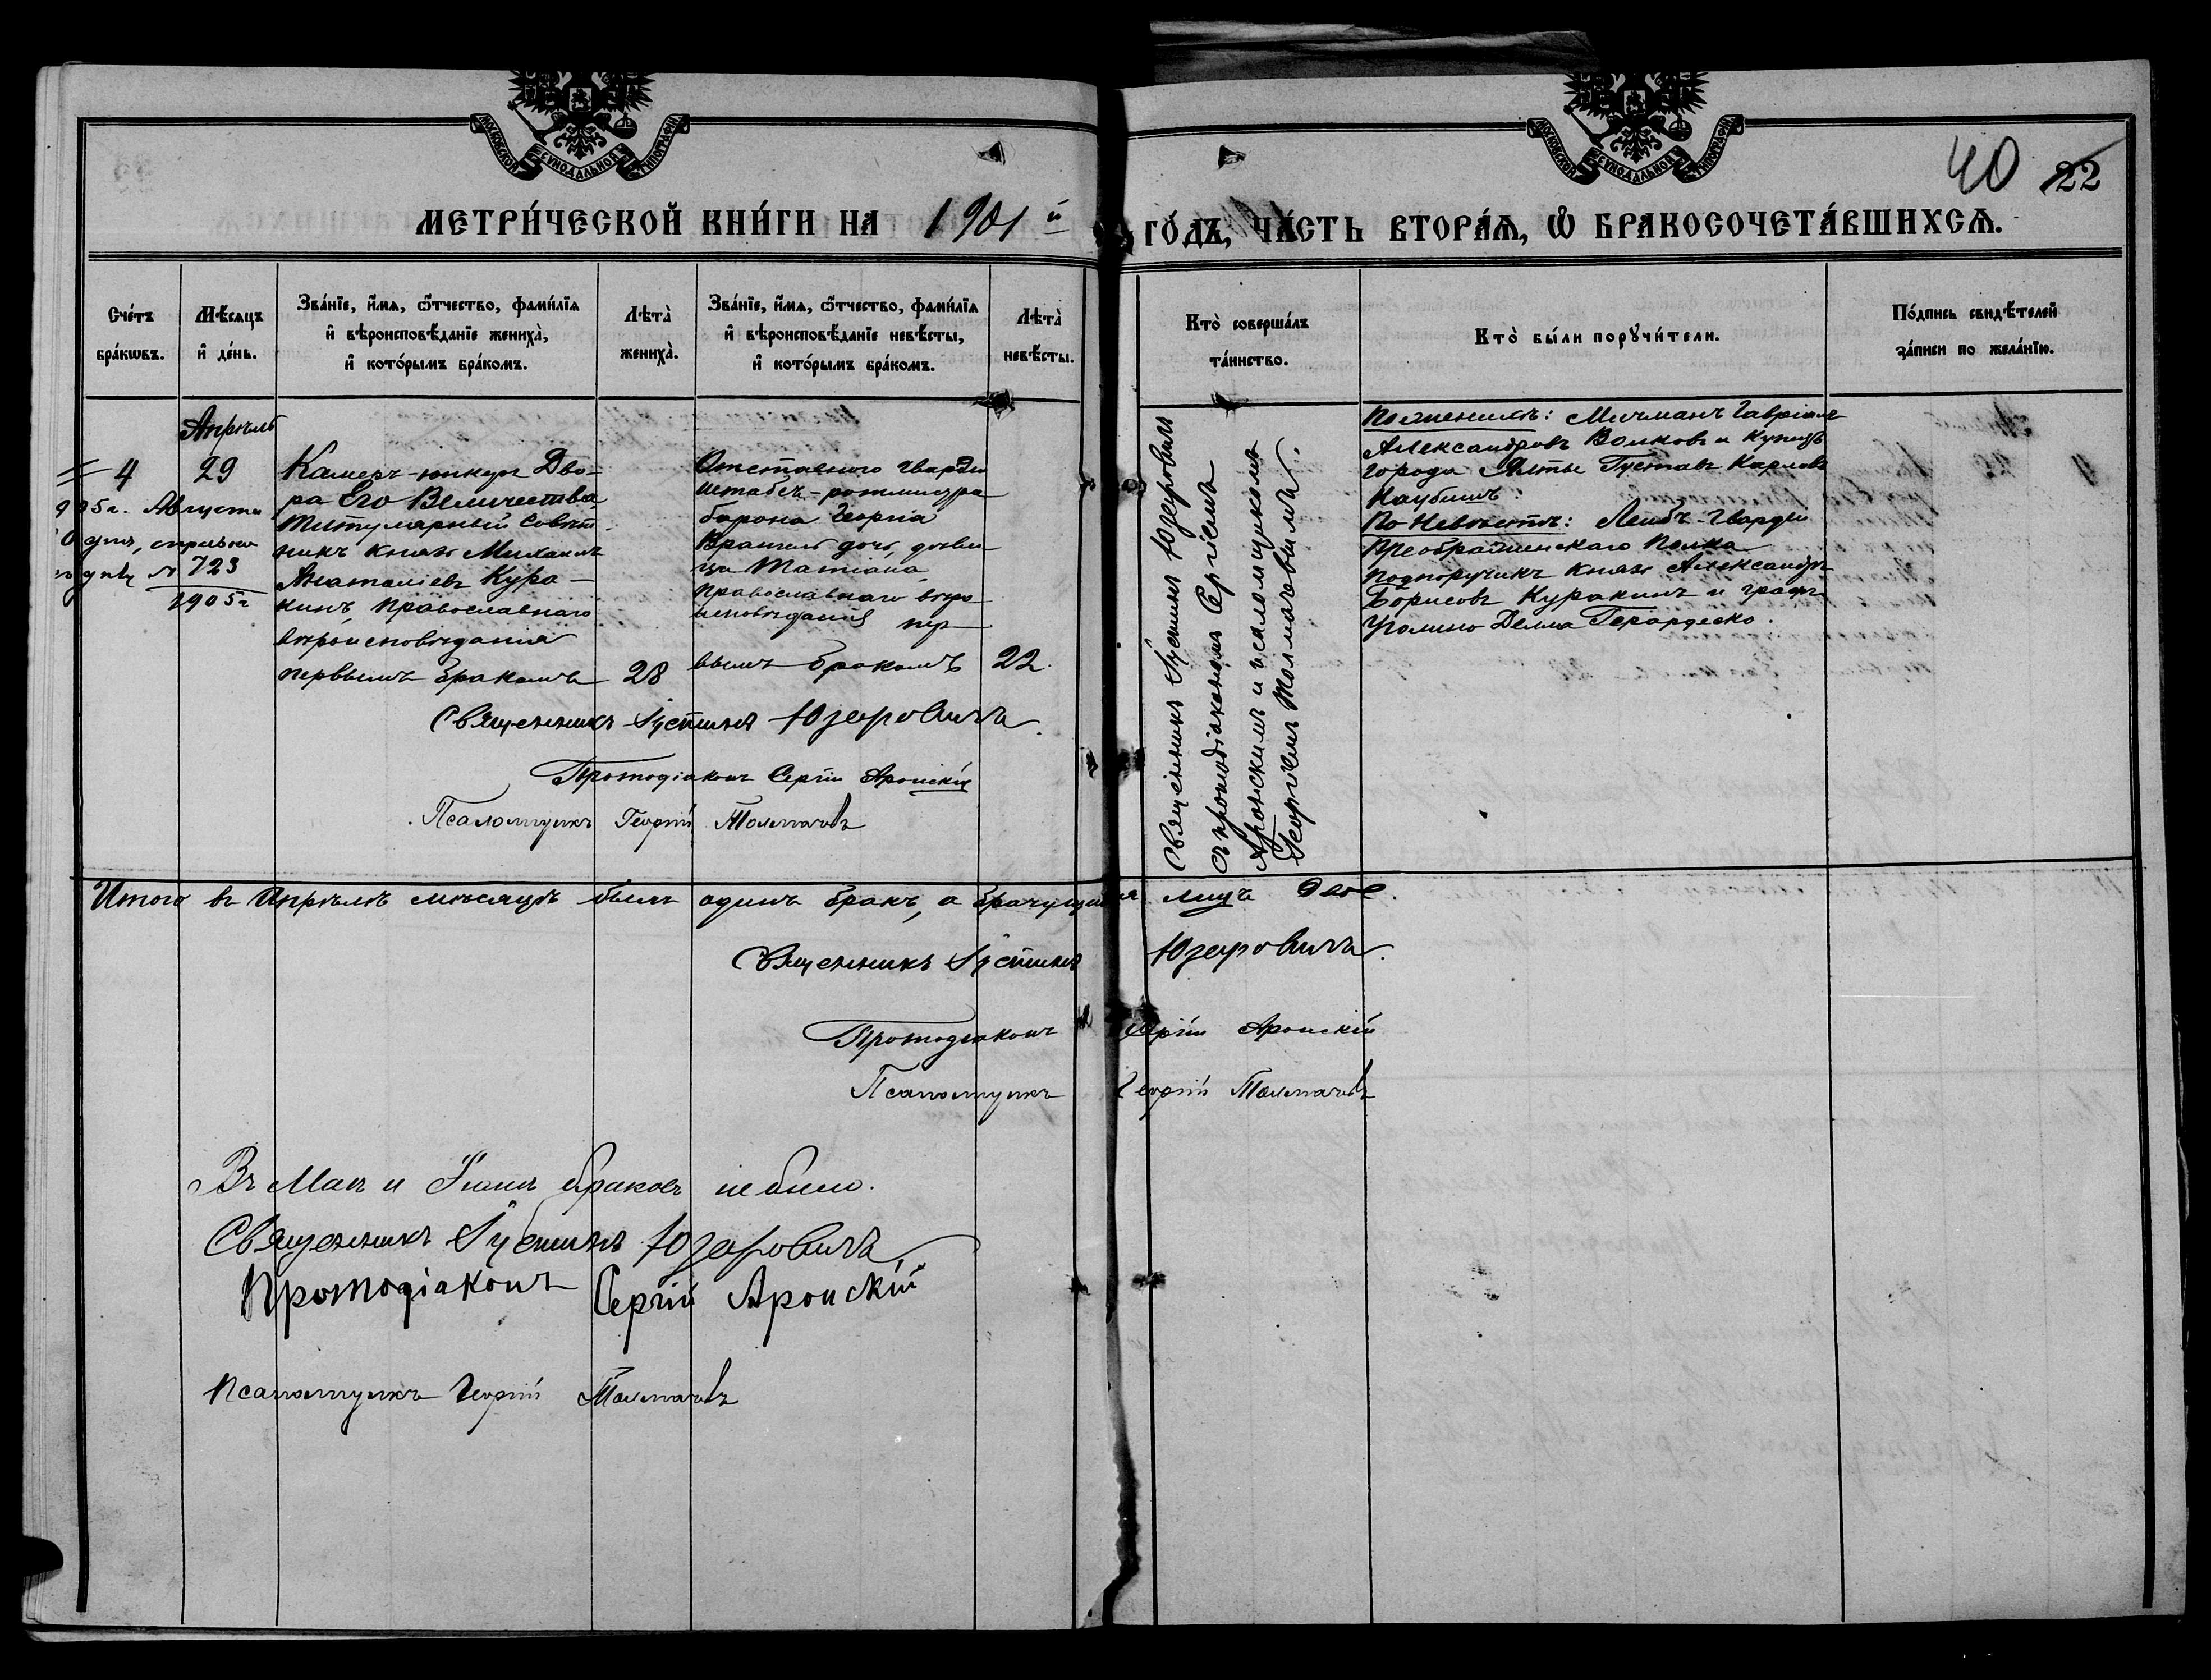 МОСКОВСКОЙ СѴНОДАЛЬНОЙ ТИПОГРАФІИ
МОСКОВСКОЙ СѴНОДАЛЬНОЙ ТИПОГРАФІИ
40 22
МЕТРИ́ЧЕСКОЙ КНИ́ГИ НА 1901й ГО́ДЪ, ЧА́СТЬ ВТОРА́Ѧ, Ѡ҆ БРАКОСОЧЕТА́ВШИХСѦ.
Сче́тъ
бра́кѡвъ.
Мѣ́сѧцъ
и҆ де́нь.
Зва́нїе, и҆́мѧ, ѻ҆́тчество, фами́лїѧ
и҆ вѣроисповѣ́данїе жениха̀,
и҆ кото́рымъ бра́комъ.
Лѣта̀
жениха̀.
Зва́нїе, и҆́мѧ, ѻ҆́тчество, фами́лїѧ
и҆ вѣроисповѣ́данїе невѣ́сты,
и҆ кото́рымъ бра́комъ.
Лѣта̀
невѣ́сты.
Кто̀ соверша́лъ
та́инство.
Кто̀ бы́ли порꙋчи́тели.
По́дпись свидѣ́телей
за́писи по жела́нїю.
Апрѣль
4
29
905г. Августа
дня, справка
№ 723
1905г
Камеръ-юнкеръ Дво-
ра Его Величества,
титулярный совѣт-
никъ князь Михаилъ
Анатоліевъ Кура-
кинъ, православнаго
вѣроисповѣданія
первымъ бракомъ
28
Отставного гвардіи
штабсъ-ротмистра
барона Георгія
Врангель дочь, дѣви-
ца Татіана,
православнаго вѣро
исповѣданія пер-
вымъ бракомъ
22.
Священникъ Іустинъ Юзефовичъ
съ протодіакономъ Сергіемъ
Аронскимъ и псаломщикомъ
Георгіемъ Толмачовымъ.
По женихѣ: Мичманъ Гавріилъ
Александровъ Волковъ и купецъ
города Ялты Густавъ Карловъ
Каубишъ.
По невѣстѣ: Лейбъ-Гвардіи
Преображенскаго Полка
подпоручикъ князь Александръ
Борисовъ Куракинъ и графъ
Уголино Делла Герардеско.
Священникъ Іустинъ Юзефовичъ.
Протодіаконъ Сергій Аронскій
Псаломщикъ Георгій Толмачовъ
Итого въ Апрѣлѣ мѣсяцѣ былъ одинъ бракъ, а брачущихся лицъ двое.
Священникъ Іустинъ Юзефовичъ.
Протодіаконъ Сергій Аронскій
Псаломщикъ Георгій Толмачовъ
Въ Маѣ и Іюнѣ браковъ не было.
Священникъ Іустинъ Юзефовичъ
Протодіаконъ Сергій Аронскій
Псаломщикъ Георгій Толмачовъ